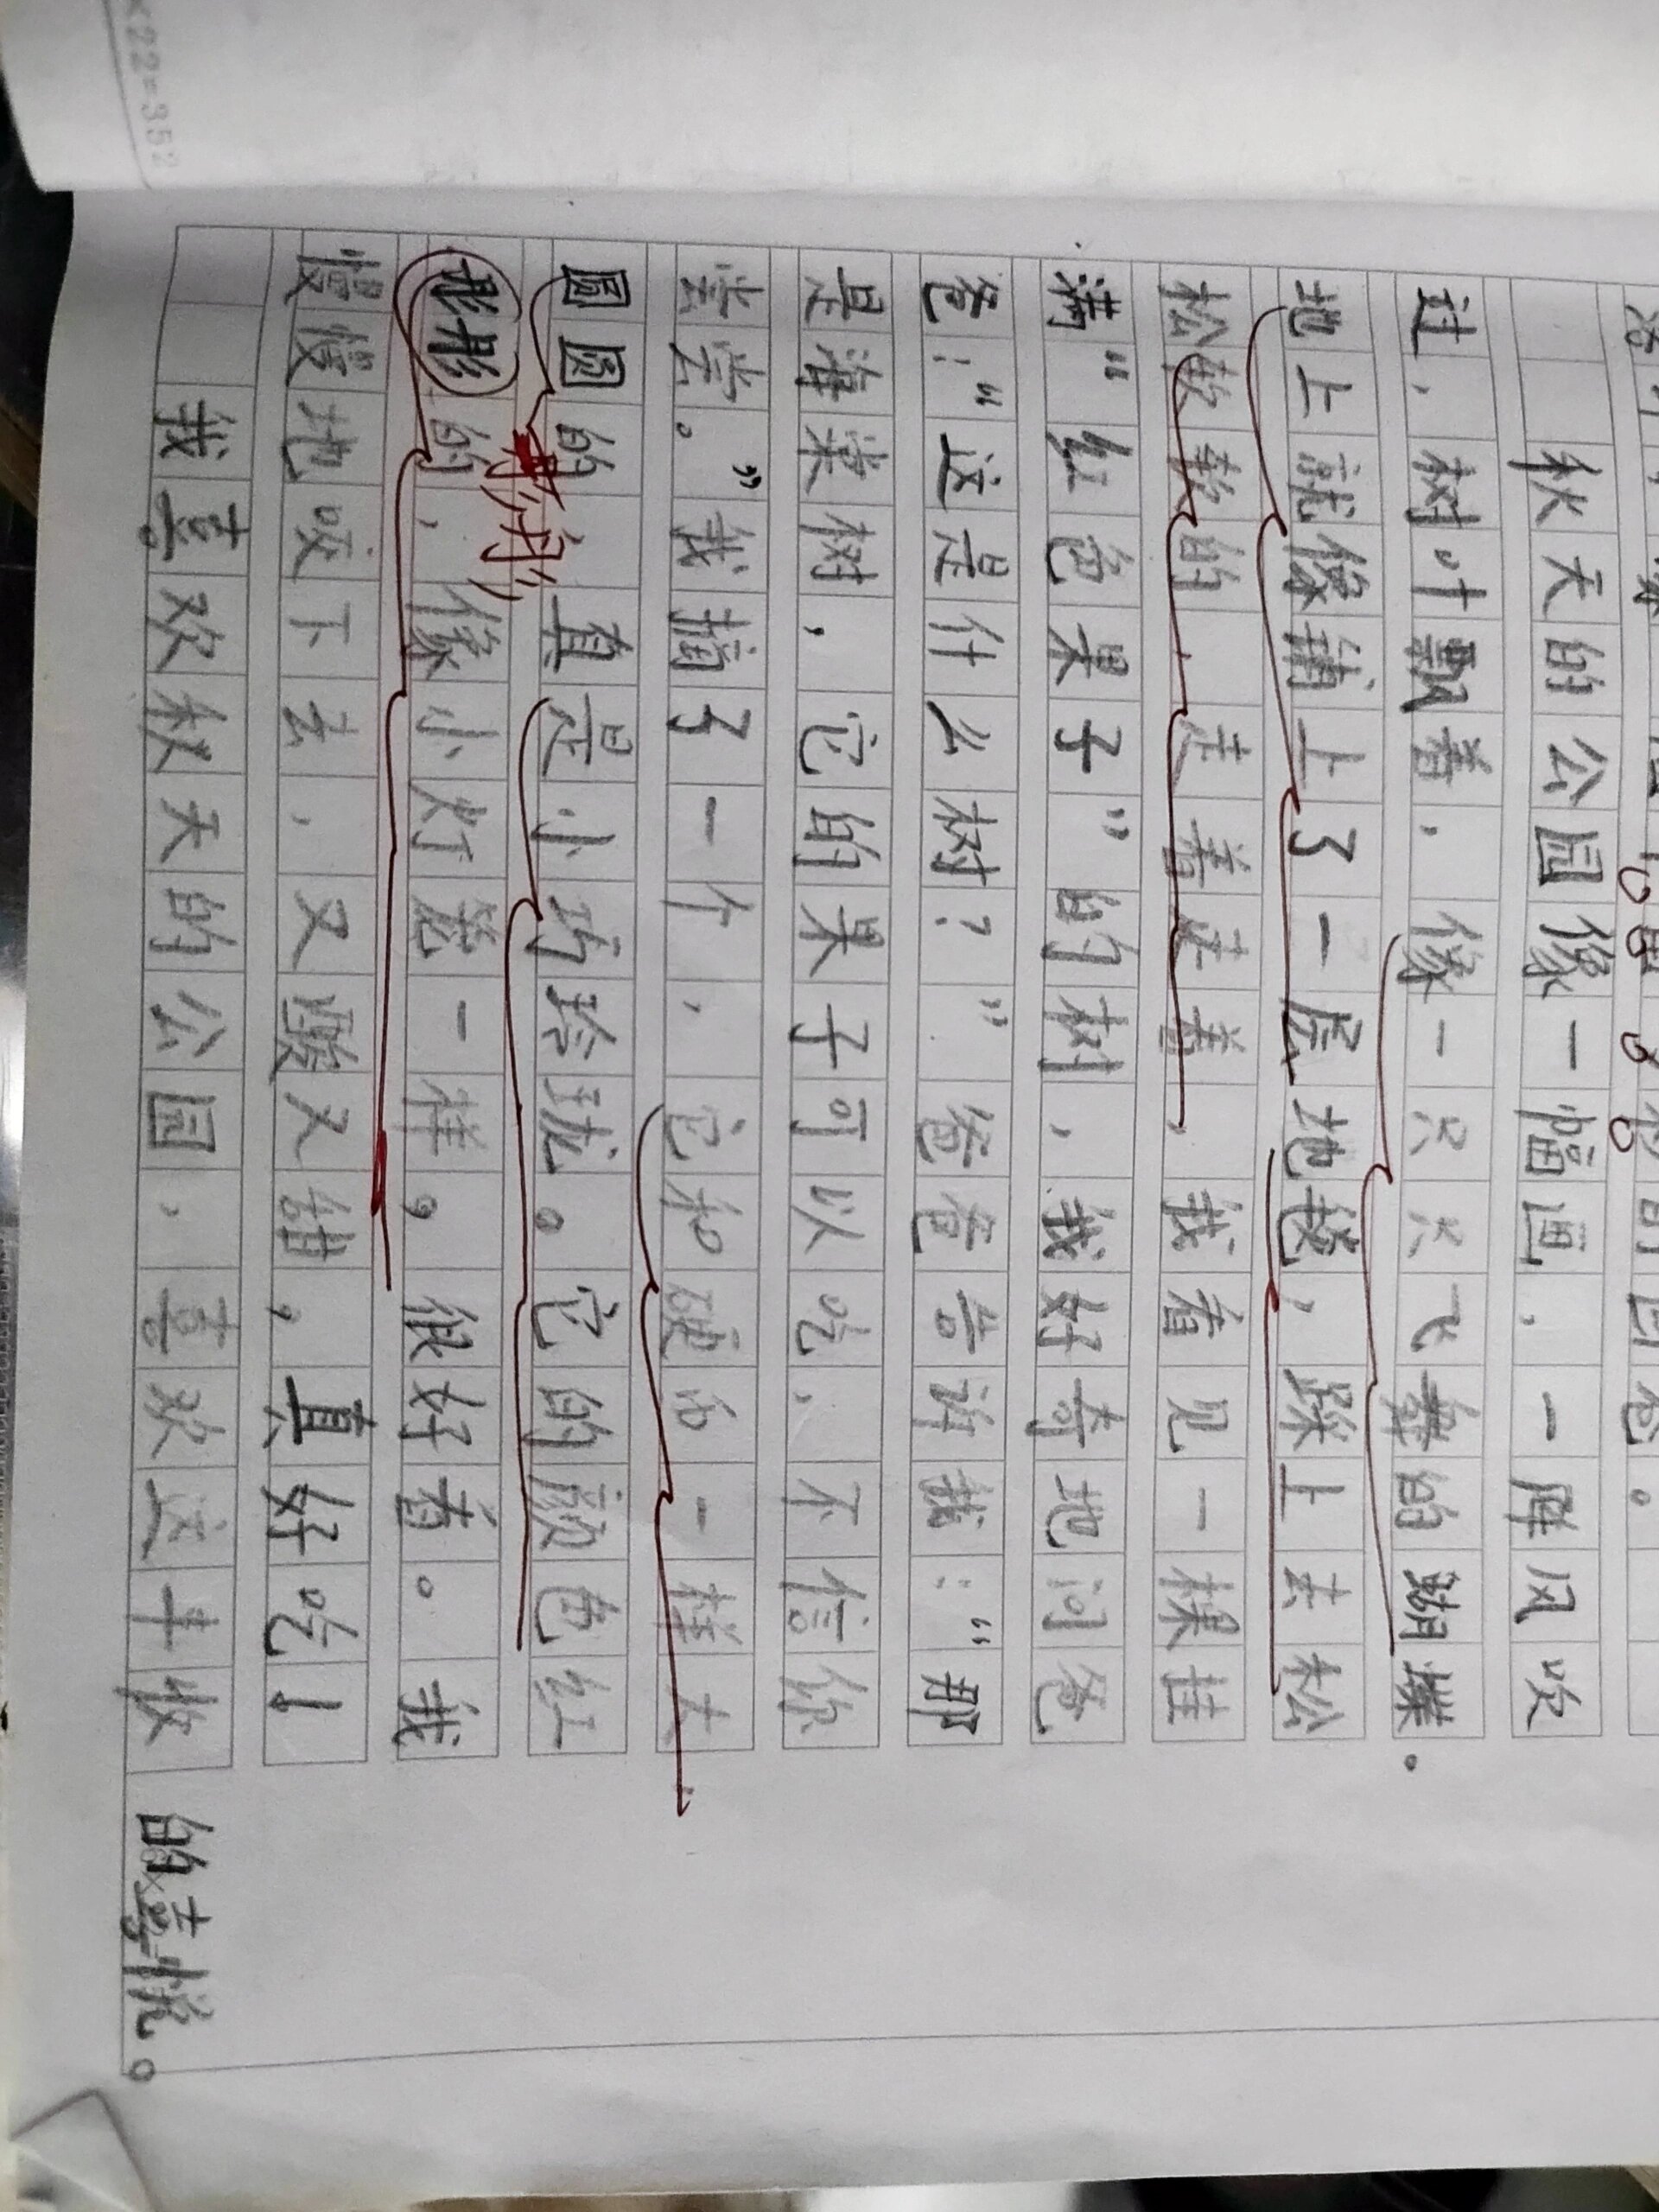 ×22=352
秋天的公园像一幅画，一阵风吹
过，树叶飘着，像一只只飞舞的蝴蝶。
地上就像铺上了一层地毯，踩上去松
松软软的，走着走着，我看见一棵挂
满“红色果子”的树，我好奇地问爸
爸：“这是什么树？”爸爸告诉我：“那
是海棠树，它的果子可以吃，不信你
尝尝。”我摘了一个，它和硬币一样大
圆圆的，真是小巧玲珑。它的颜色红
彤彤
形形的，像小灯笼一样，很好看。我
慢慢地咬下去，又酸又甜，真好吃！
我喜欢秋天的公园，喜欢这丰收的喜悦。